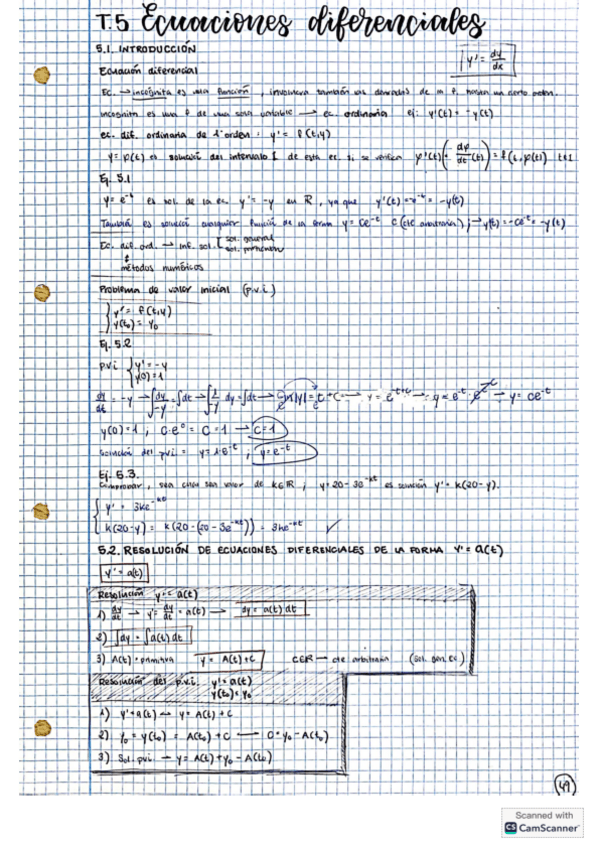 T.5 Ecuaciones diferenciales
5.1. INTRODUCCIÓN
y' = dy/dx
Ecuación diferencial
Ec. → incógnita es una función, involucra también las derivadas de la f. hasta un cierto orden.
incógnita es una f de una sola variable → ec. ordinaria ej: y'(t) = -y(t)
ec. dif. ordinaria de 1er orden: y' = f(t,y)
y = φ(t) es solución del intervalo I de esta ec. si se verifica φ'(t) (= dφ/dt (t)) = f(t, φ(t)) t∈I
Ej. 5.1
y = e^-t es sol. de la ec y' = -y en R, ya que y'(t) = -e^-t = -y(t)
También es solución cualquier función de la forma y = Ce^-t C (cte arbitraria); → y'(t) = -Ce^-t = -y(t)
Ec. dif. ord. → inf. sol. [ sol. general
sol. particular
métodos numéricos
Problema de valor inicial (p.v.i)
{ y' = f(t,y)
y(t₀) = y₀
Ej. 5.2
pvi { y' = -y
y(0) = 1
dy/dt = -y → ∫dy/-y = ∫dt → ∫1/-y dy = ∫dt → ln|y| = t + C → y = e^-t+c → y = e^-t · e^c → y = ce^-t
y(0) = 1 ; C·e⁰ = C = 1 → C = 1
Solución del pvi = y = 1·e^-t ; y = e^-t
Ej. 5.3.
Comprobar, sea cual sea valor de k∈R, y = 20 - 3e^-kt es solución y' = k(20-y).
{ y' = 3ke^-kt
k(20-y) = k(20 - (20 - 3e^-kt)) = 3ke^-kt ✓
5.2. RESOLUCIÓN DE ECUACIONES DIFERENCIALES DE LA FORMA y' = a(t)
y' = a(t)
Resolución y' = a(t)
1) dy/dt → y' = dy/dt = a(t) → dy = a(t) dt
2) ∫dy = ∫a(t) dt
3) A(t) = primitiva y = A(t) + C C∈R → cte arbitraria (Sol. gen. Ec)
Resolución del p.v.i y' = a(t)
y(t₀) = y₀
1) y' = a(t) → y = A(t) + C
2) y₀ = y(t₀) = A(t₀) + C → C = y₀ - A(t₀)
3) Sol. pvi → y = A(t) + y₀ - A(t₀)
49
Scanned with
CS CamScanner